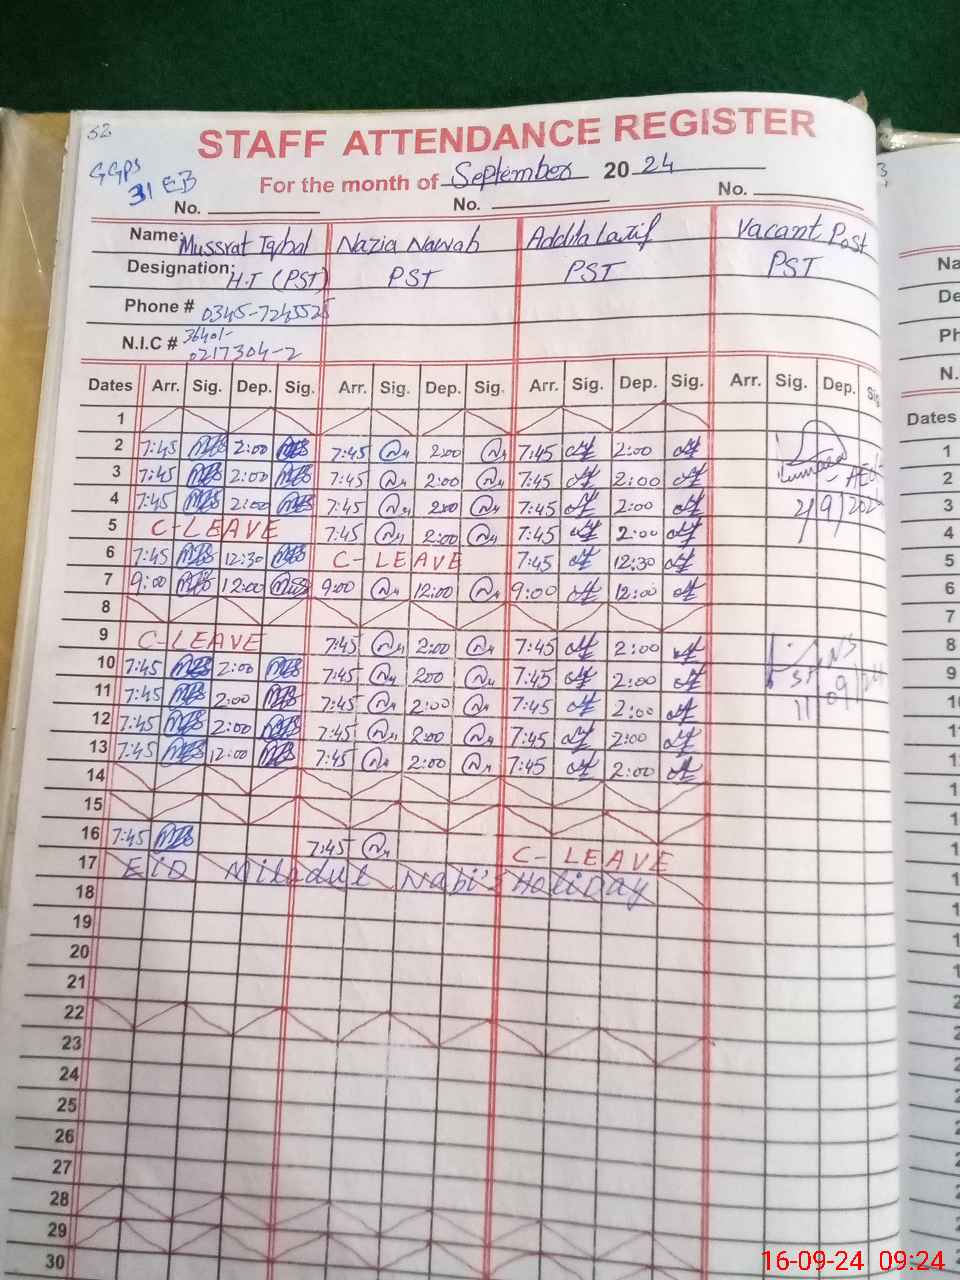 52
STAFF ATTENDANCE REGISTER
GGPS
31 EB
For the month of September 2024
No. No. No.
Name: Mussrat Iqbal Nazia Nawab Addila Latif Vacant Post
Designation: H.T (PST) PST PST PST
Phone # 0345-7245525
N.I.C # 36401-
0217304-2
Dates Arr. Sig. Dep. Sig. Arr. Sig. Dep. Sig. Arr. Sig. Dep. Sig. Arr. Sig. Dep. Sig
1
2 7:45 2:00 7:45 2:00 7:45 2:00
3 7:45 2:00 7:45 2:00 7:45 2:00
4 7:45 2:00 7:45 2:00 7:45 2:00 2/9/202
5 C-LEAVE 7:45 2:00 7:45 2:00
6 7:45 12:30 C-LEAVE 7:45 12:30
7 9:00 12:00 9:00 12:00 9:00 12:00
8
9 C-LEAVE 7:45 2:00 7:45 2:00
10 7:45 2:00 7:45 200 7:45 2:00
11 7:45 2:00 7:45 2:00 7:45 2:00
12 7:45 2:00 7:45 2:00 7:45 2:00
13 7:45 12:00 7:45 2:00 7:45 2:00
14
15
16 7:45 7:45 C-LEAVE
17 EID Miladul Nabi's Holiday
18
19
20
21
22
23
24
25
26
27
28
29
30
Na
De
Ph
N.
Dates
1
2
3
4
5
6
7
8
9
16-09-24 09:24